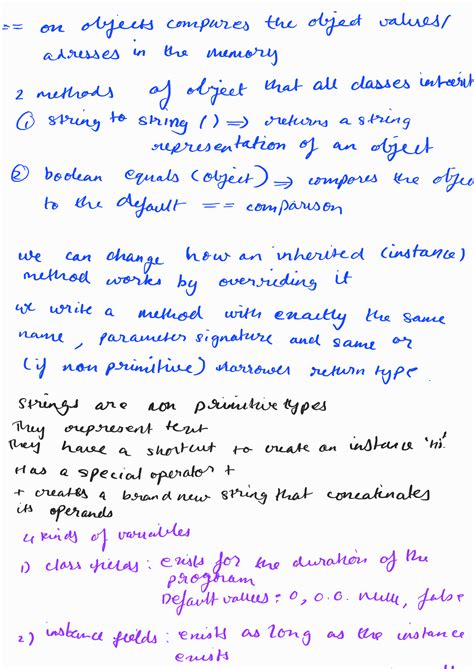 == on objects compares the object values/
adresses in the memory
2 methods of object that all classes inherit
① string to string () ⇒ returns a string
representation of an object
② boolean equals (object) ⇒ compores the objec
to the default == comparison
we can change how an inherited (instance)
method works by overriding it
we write a method with exactly the same
name, parameter signature and same or
(if non primitive) narrower return type.
strings are non primitive types
They represent text
They have a shortcut to create an instance 'Hi'.
Has a special operator +
+ creates a brand new string that concatinates
its operands
4 kinds of variables
1) class fields : exists for the duration of the
program
Default values : 0, 0.0. null, false
2) instance fields : exists as long as the instance
exists